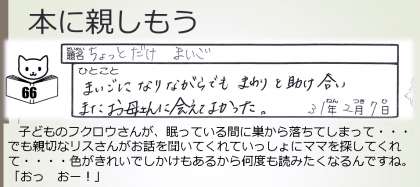 本に親しもう
題名 ちょっとだけ まいご
ひとこと
まいごになりながらでも まわりと助け合い
またお母さんに会えてよかった。 31年2月7日
66
子どものフクロウさんが、眠っている間に巣から落ちてしまって・・・
でも親切なリスさんがお話を聞いてくれていっしょにママを探してくれ
て・・・・色がきれいでしかけもあるから何度も読みたくなるんですね。
「おっ おー！」